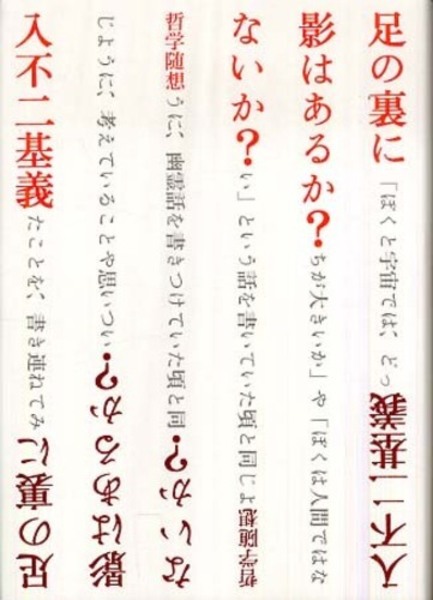 足の裏に「ぼくと宇宙では、どっ入不二基義
影はあるか？ちが大きいか」や「ぼくは人間ではな
ないか？い」という話を書いていた頃と同じよ哲学随想
哲学随想うに、幽霊話を書きつけていた頃と同ないか？
じように、考えていることや思いつい影はあるか？
入不二基義たことを、書き連ねてみ足の裏に